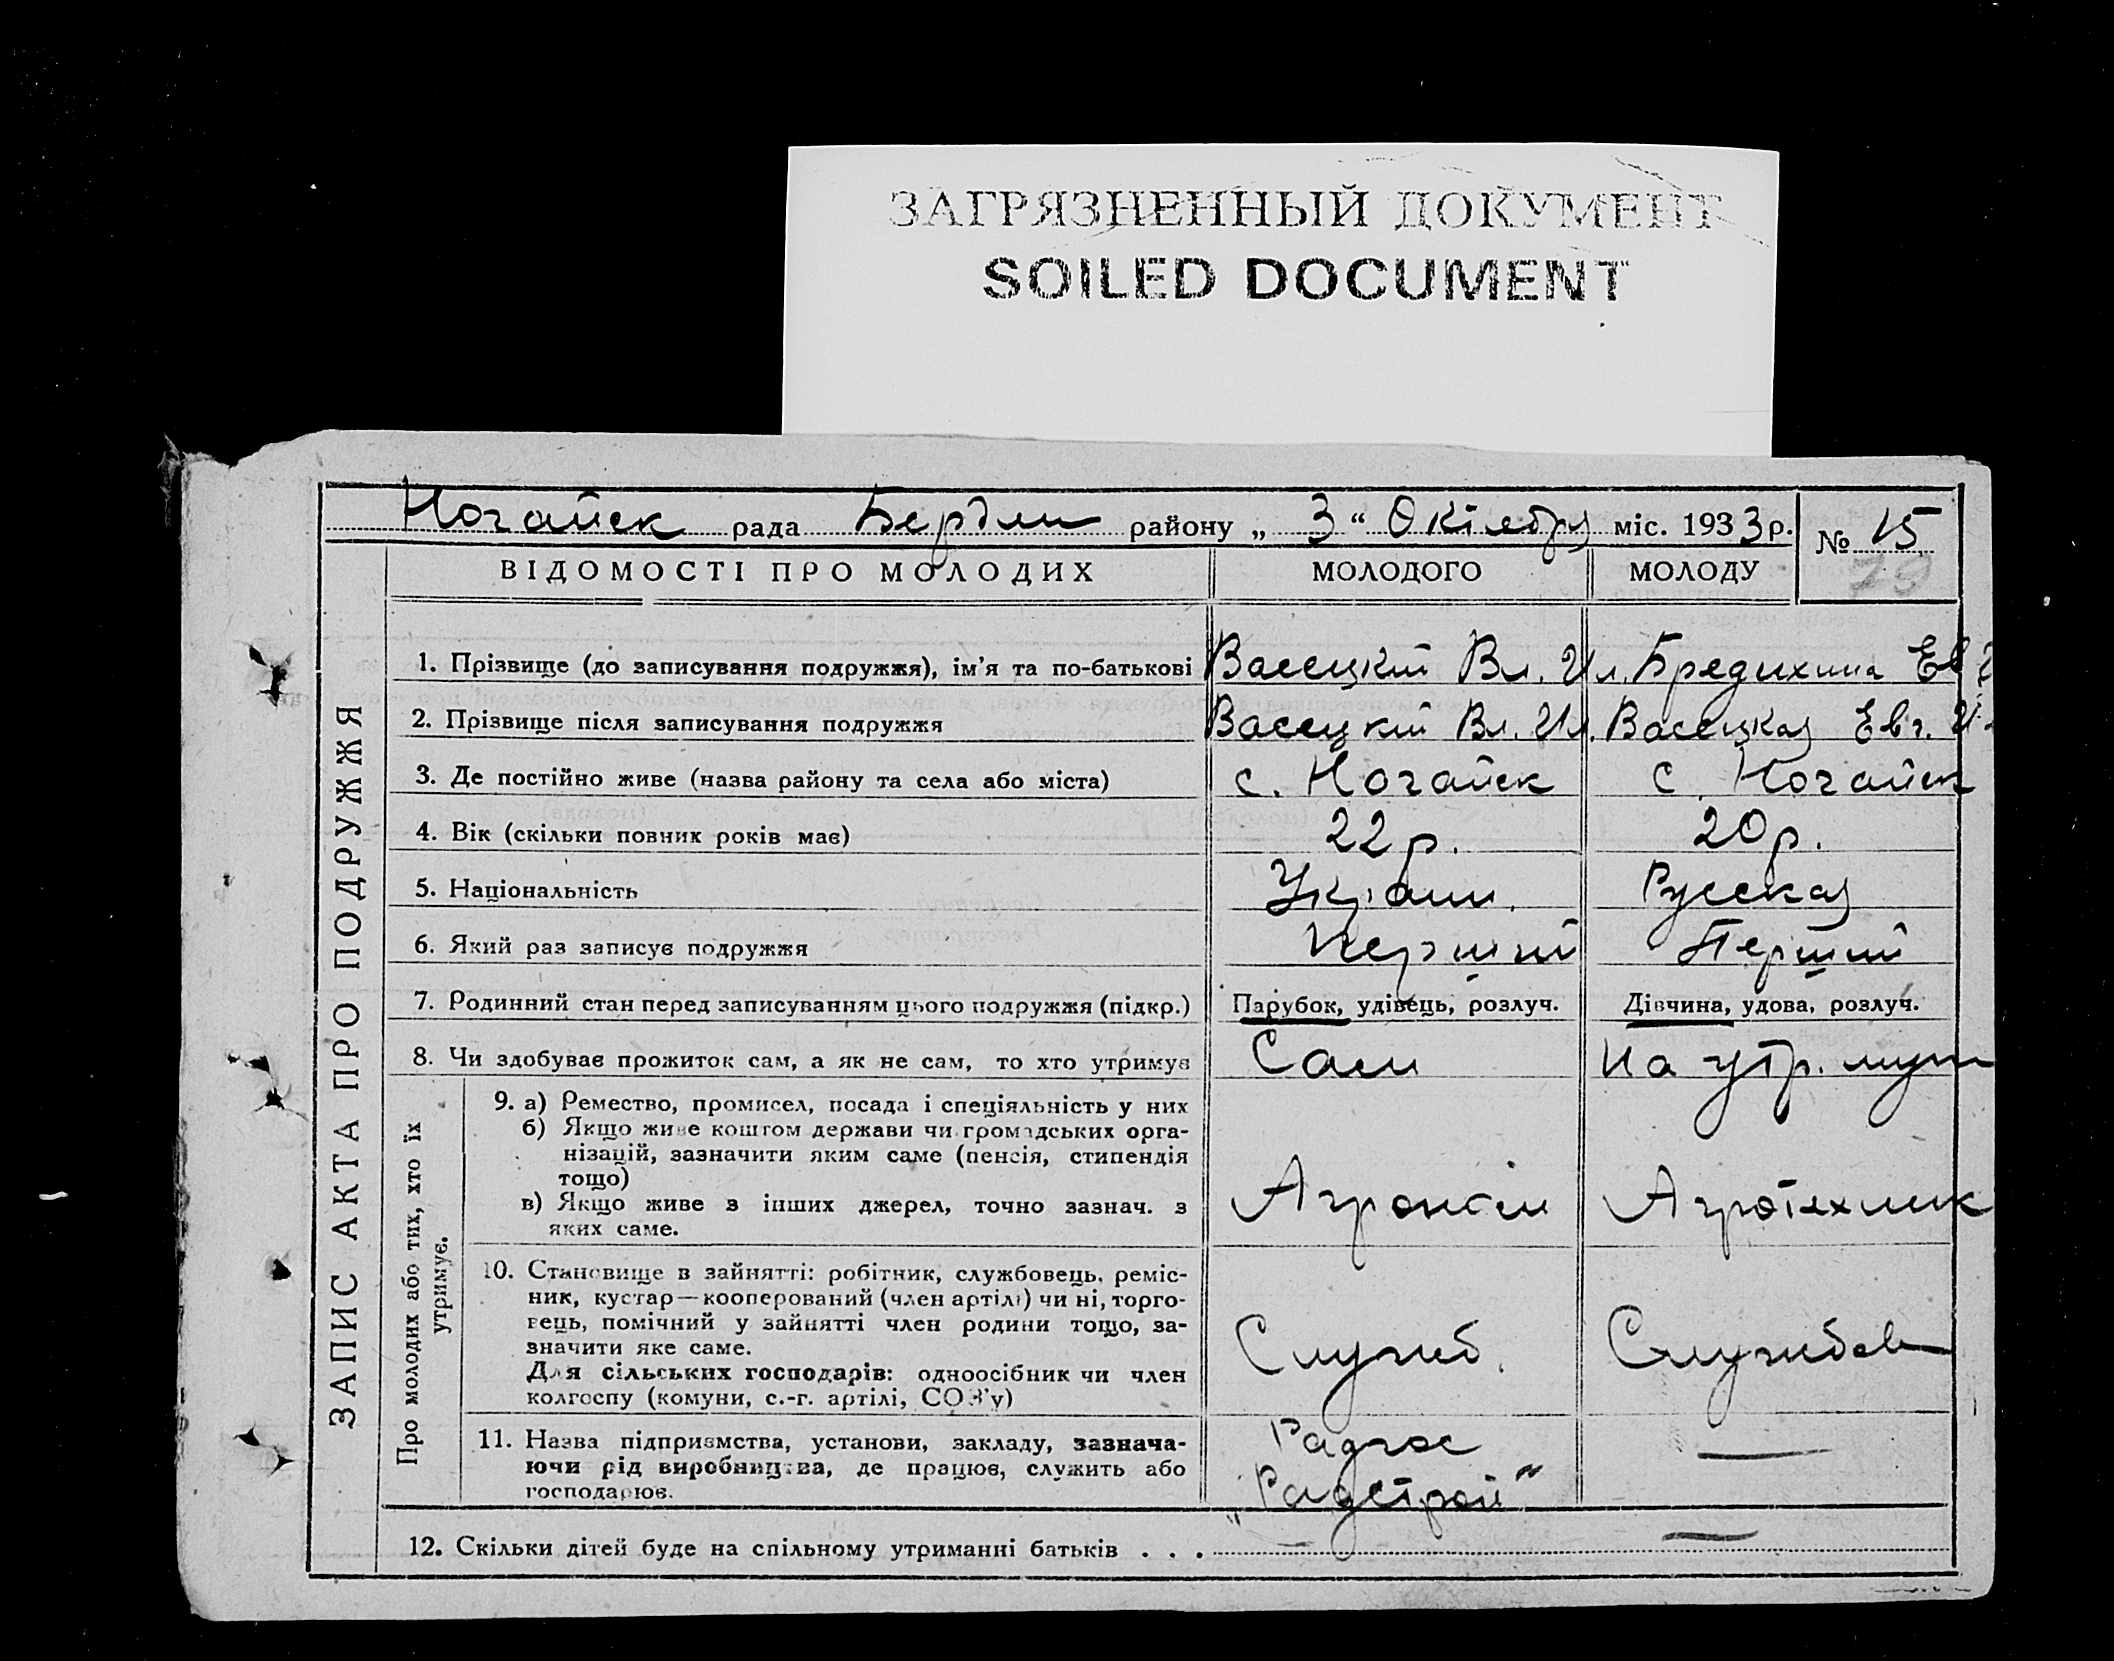 ЗАГРЯЗНЕННЫЙ ДОКУМЕНТ
SOILED DOCUMENT
Ногайск рада Бердян району „ 3 “ Октября міс. 1933 р. № 15
78
ЗАПИС АКТА ПРО ПОДРУЖЖЯ
ВІДОМОСТІ ПРО МОЛОДИХ МОЛОДОГО МОЛОДУ
1. Прізвище (до записування подружжя), ім’я та по-батькові Васецкий Вл. Ил. Бредихина Ев
2. Прізвище після записування подружжя Васецкий Вл. Ил. Васецкая Евг. И
3. Де постійно живе (назва району та села або міста) с. Ногайск с. Ногайск
4. Вік (скільки повних років має) 22 р. 20 р.
5. Національність Украин. Русская
6. Який раз записує подружжя Перший Перший
7. Родинний стан перед записуванням цього подружжя (підкр.) Парубок, удівець, розлуч. Дівчина, удова, розлуч.
8. Чи здобуває прожиток сам, а як не сам, то хто утримує Сам На утр. муж
Про молодих або тих, хто їх утримує.
9. а) Ремество, промисел, посада і спеціяльність у них
б) Якщо живе коштом держави чи громадських орга-
нізацій, зазначити яким саме (пенсія, стипендія
тощо)
в) Якщо живе з інших джерел, точно зазнач. з
яких саме.
Агроном Агротехник
10. Становище в зайнятті: робітник, службовець, реміс-
ник, кустар—кооперований (член артілі) чи ні, торго-
вець, помічний у зайнятті член родини тощо, за-
значити яке саме.
Для сільських господарів: одноосібник чи член
колгоспу (комуни, с.-г. артілі, СОЗ’у)
Служб. Службов
11. Назва підприємства, установи, закладу, зазнача-
ючи рід виробництва, де працює, служить або
господарює.
Радгос
„Радстрой“
12. Скільки дітей буде на спільному утриманні батьків . . .